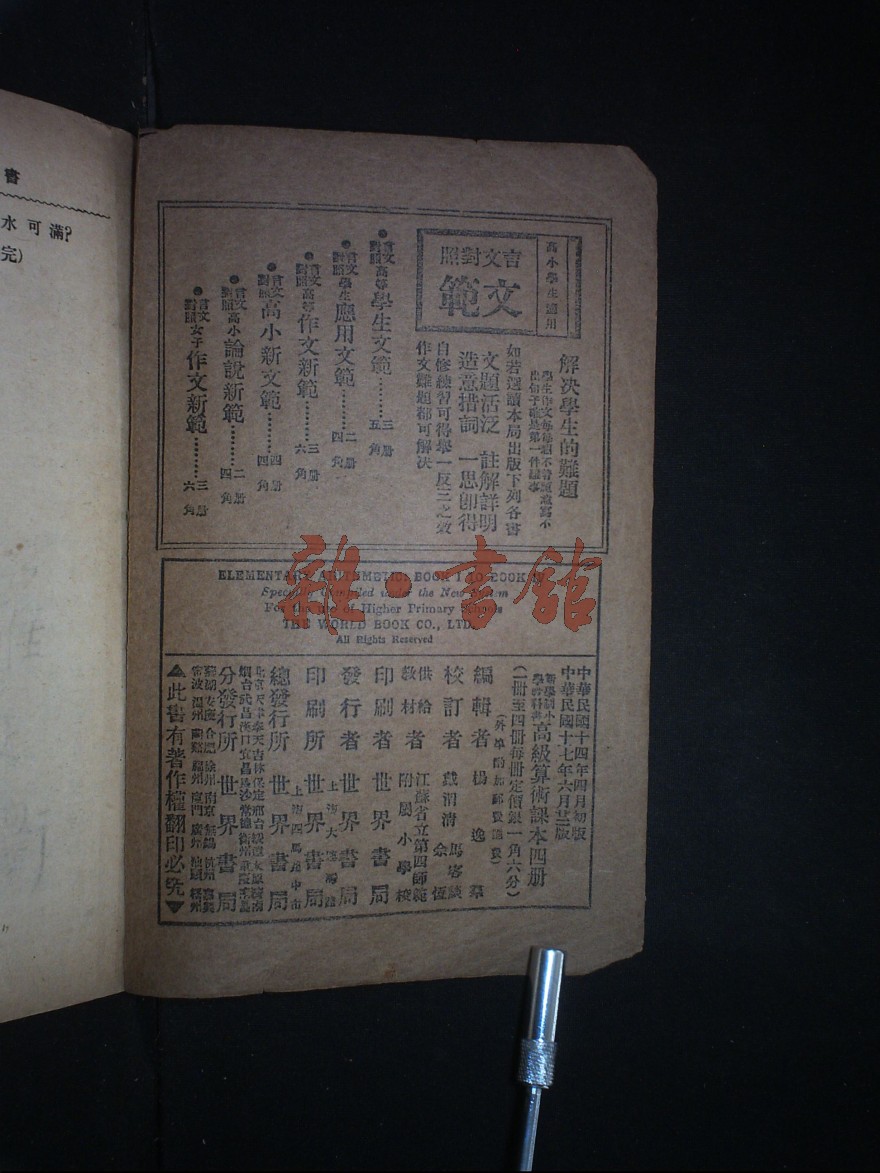 書
水可滿?
完)
高小學生適用
言文對照
文範
解决學生的難題
如若選讀本局出版下列各書
文題活泛 註解詳明
造意措詞 一思卽得
自修練習可得舉一反三之效
作文難題都可解决
●言文對照高等學生文範………三册 五角
●言文對照學生應用文範………二册 四角
●言文對照高等作文新範………三册 六角
●言文對照高小新文範………四册 四角
●言文對照高小論說新範………二册 四角
●言文對照女子作文新範………三册 六角
ELEMENTARY ARITHMETICS BOOK I TO BOOK
Specially Compiled under the New System
For the use of Higher Primary Schools
THE WORLD BOOK CO., LTD.
All Rights Reserved
中華民國十四年四月初版
中華民國十七年六月廿二版
新學制小學教科書高級算術課本四册
(一册至四册每册定價銀一角六分)
(外埠酌加郵費滙費)
編輯者 楊逸羣
校訂者 戴渭清
供給教材者 江蘇省立第四師範附屬小學校
印刷者 世界書局
發行者 世界書局
印刷所 世界書局
總發行所 世界書局
上海四馬路中市
分發行所 世界書局
▲此書有著作權翻印必究▼
雜·書館